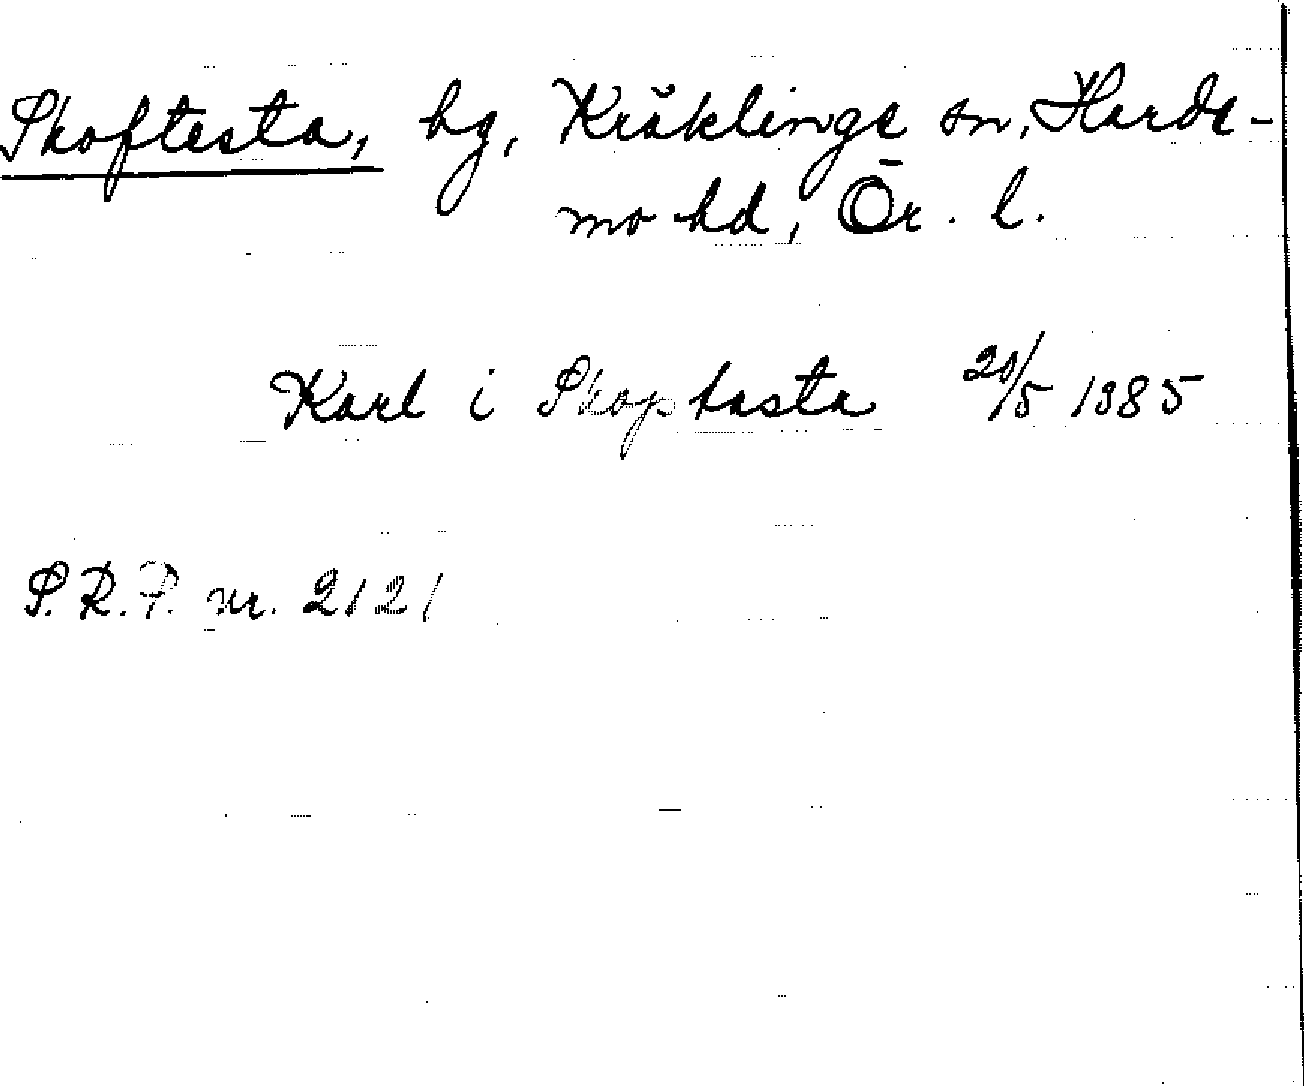 Skoftesta, by, Kräklinge sn, Harde-
mo hd, Ör. l.
Karl i Skoptasta 20/5 1385
S.R.P. nr. 2121